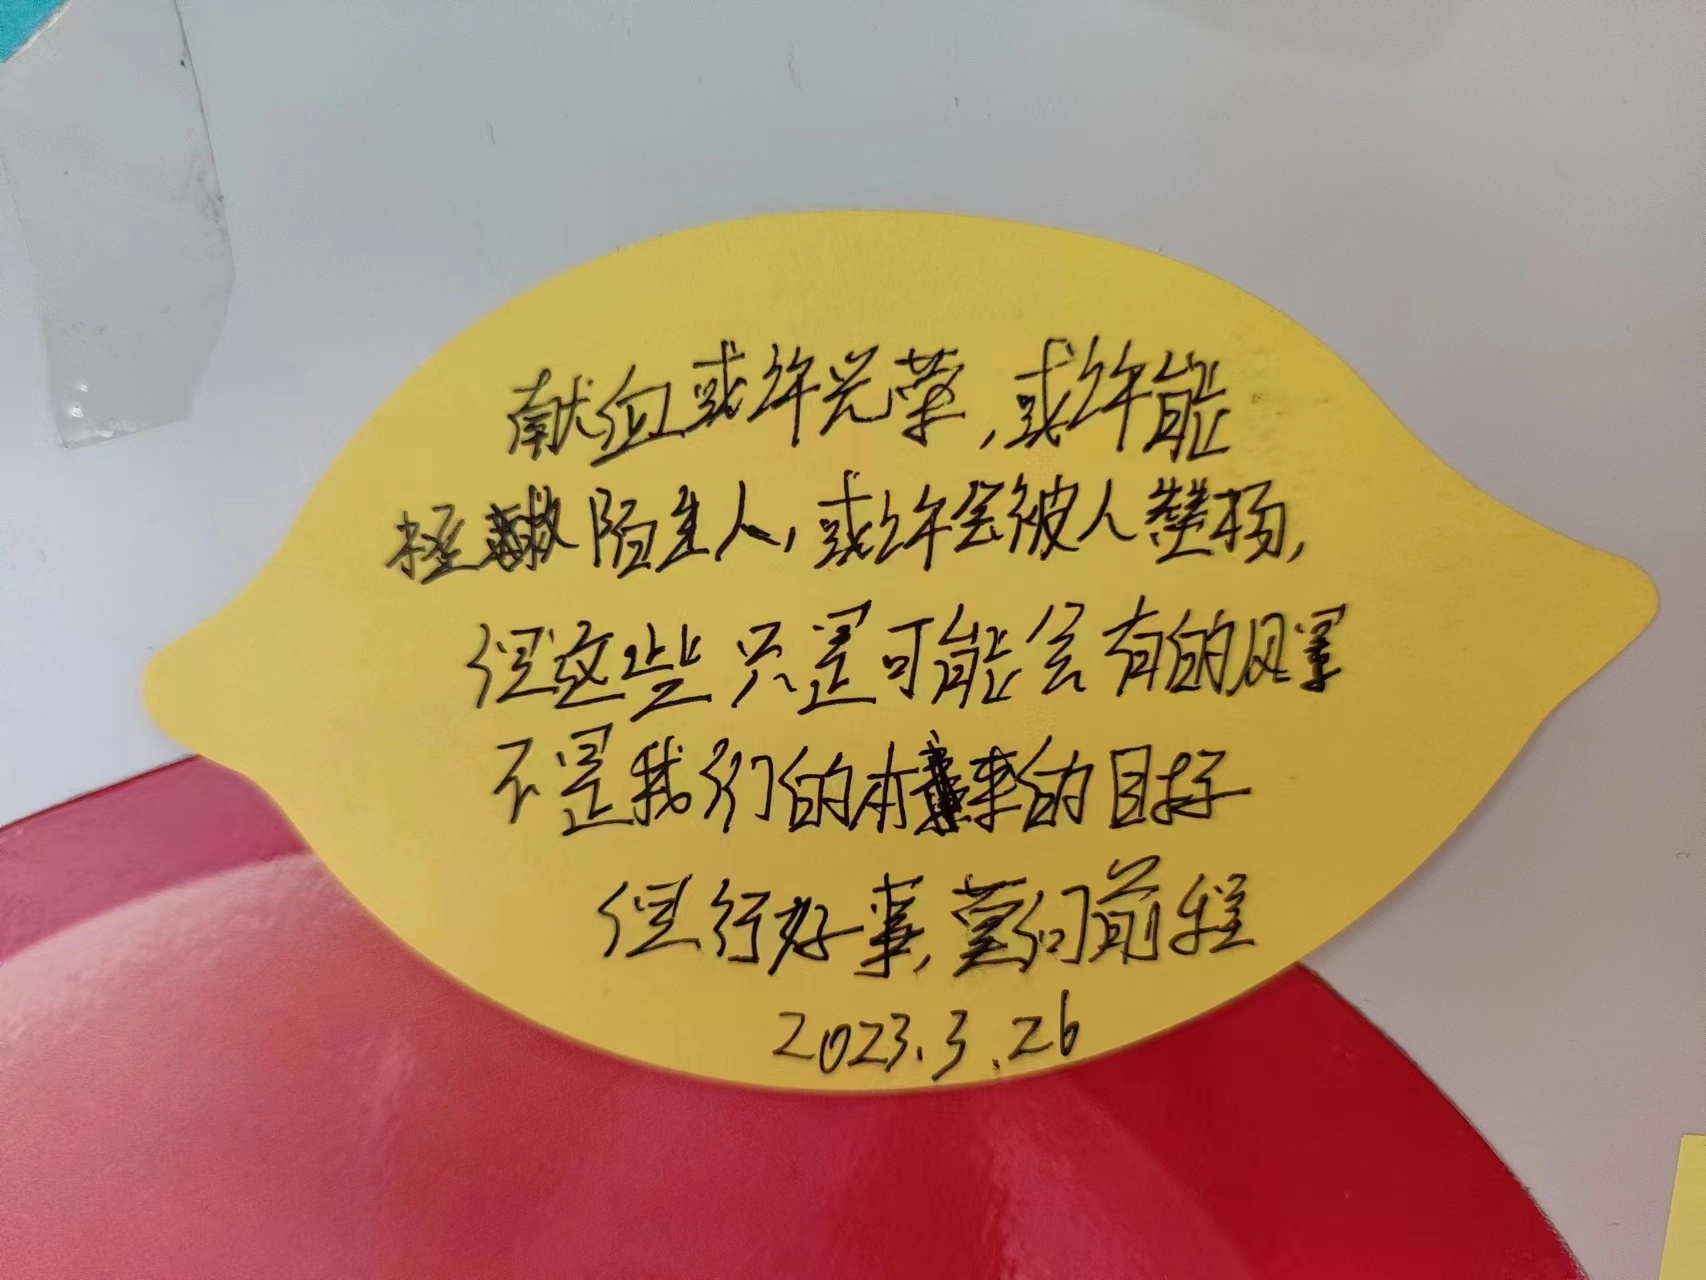 献血或许光荣,或许能
拯救陌生人,或许会被人赞扬,
但这些只是可能会有的风景
不是我们的本来的目标
但行好事,莫问前程
2023.3.26